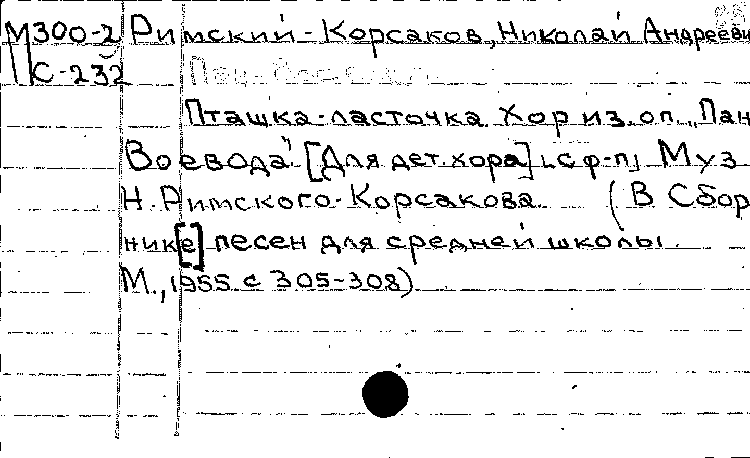 М300-2 Римский-Корсаков, Николай Андрееви
С-232
Пташка-ласточка. Хор из оп. „Пан
Воевода" [Для дет. хора] с ф-п. Муз
Н. Римского-Корсакова. (В Сбор
ник[е] песен для средней школы.
М., 1955 с 305-308)